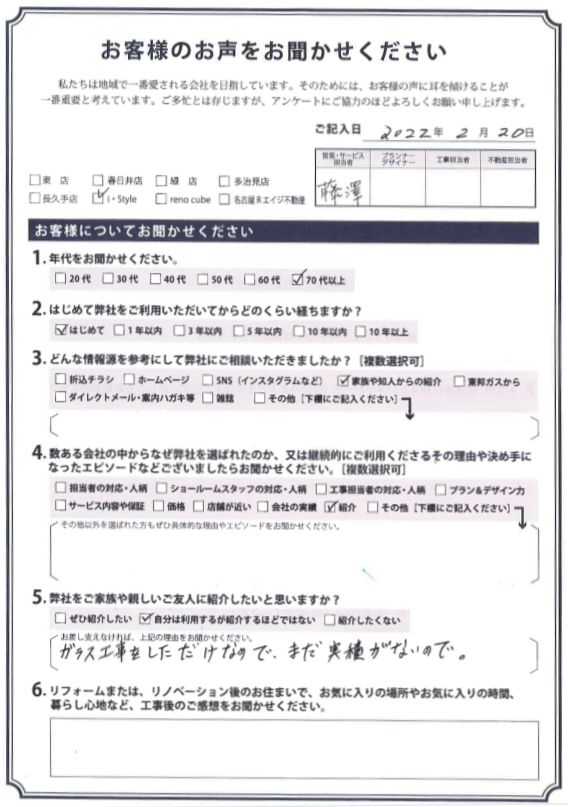 お客様のお声をお聞かせください
私たちは地域で一番愛される会社を目指しています。そのためには、お客様の声に耳を傾けることが
一番重要と考えています。ご多忙とは存じますが、アンケートにご協力のほどよろしくお願い申し上げます。
ご記入日 2022年 2月 20日
営業・サービス担当者 プランナーデザイナー 工事担当者 不動産担当者
藤澤
□東 店 □春日井店 □緑 店 □多治見店
□長久手店 ☑i・Style □reno cube □名古屋Rエイジ不動産
お客様についてお聞かせください
1.年代をお聞かせください。
□20代 □30代 □40代 □50代 □60代 ☑70代以上
2.はじめて弊社をご利用いただいてからどのくらい経ちますか？
☑はじめて □1年以内 □3年以内 □5年以内 □10年以内 □10年以上
3.どんな情報源を参考にして弊社にご相談いただきましたか？［複数選択可］
□折込チラシ □ホームページ □SNS（インスタグラムなど） ☑家族や知人からの紹介 □東邦ガスから
□ダイレクトメール・案内ハガキ等 □雑誌 □その他［下欄にご記入ください］
4.数ある会社の中からなぜ弊社を選ばれたのか、又は継続的にご利用くださるその理由や決め手に
なったエピソードなどございましたらお聞かせください。［複数選択可］
□担当者の対応・人柄 □ショールームスタッフの対応・人柄 □工事担当者の対応・人柄 □プラン＆デザイン力
□サービス内容や保証 □価格 □店舗が近い □会社の実績 ☑紹介 □その他［下欄にご記入ください］
その他以外を選ばれた方もぜひ具体的な理由やエピソードをお聞かせください。
5.弊社をご家族や親しいご友人に紹介したいと思いますか？
□ぜひ紹介したい ☑自分は利用するが紹介するほどではない □紹介したくない
お差し支えなければ、上記の理由をお聞かせください。
ガラス工事をしただけなので、まだ実積がないので。
6.リフォームまたは、リノベーション後のお住まいで、お気に入りの場所やお気に入りの時間、
暮らし心地など、工事後のご感想をお聞かせください。